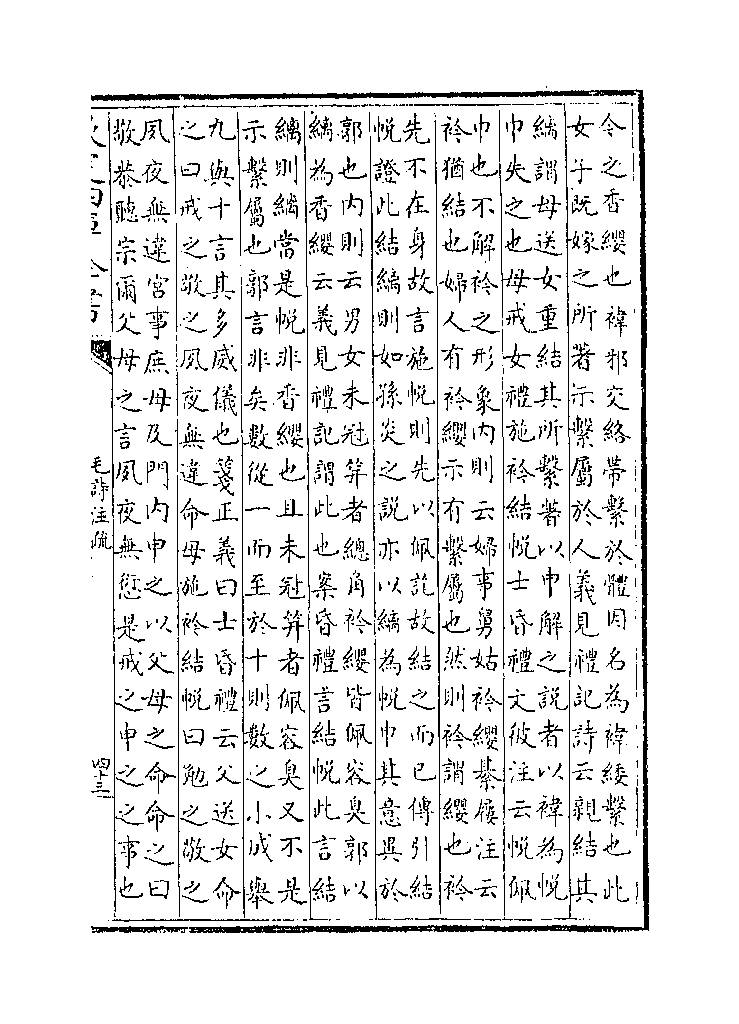 令之香纓也褘邪交絡帶繫於體因名為褘緌繫也此
女子既嫁之所著示繫屬於人義見禮記詩云親結其
縭謂母送女重結其所繫著以申解之説者以褘為帨
巾失之也母戒女禮施衿結帨士昏禮文彼注云帨佩
巾也不解衿之形象内則云婦事舅姑衿纓綦屨注云
衿猶結也婦人有衿纓示有繫屬也然則衿謂纓也衿
先不在身故言施帨則先以佩訖故結之而已傳引結
帨證此結縭則如孫炎之説亦以縭為帨巾其意異於
郭也内則云男女未冠笄者總角衿纓皆佩容臭郭以
縭為香纓云義見禮記謂此也案昏禮言結帨此言結
縭則縭當是帨非香纓也且未冠笄者佩容臭又不是
示繫屬也郭言非矣數從一而至於十則數之小成舉
九與十言其多威儀也箋正義曰士昏禮云父送女命
之曰戒之敬之夙夜無違命母施衿結帨曰勉之敬之
夙夜無違宫事庶母及門内申之以父母之命命之曰
敬恭聽宗爾父母之言夙夜無愆是戒之申之之事也
欽定四庫全書
毛詩注疏
四十三